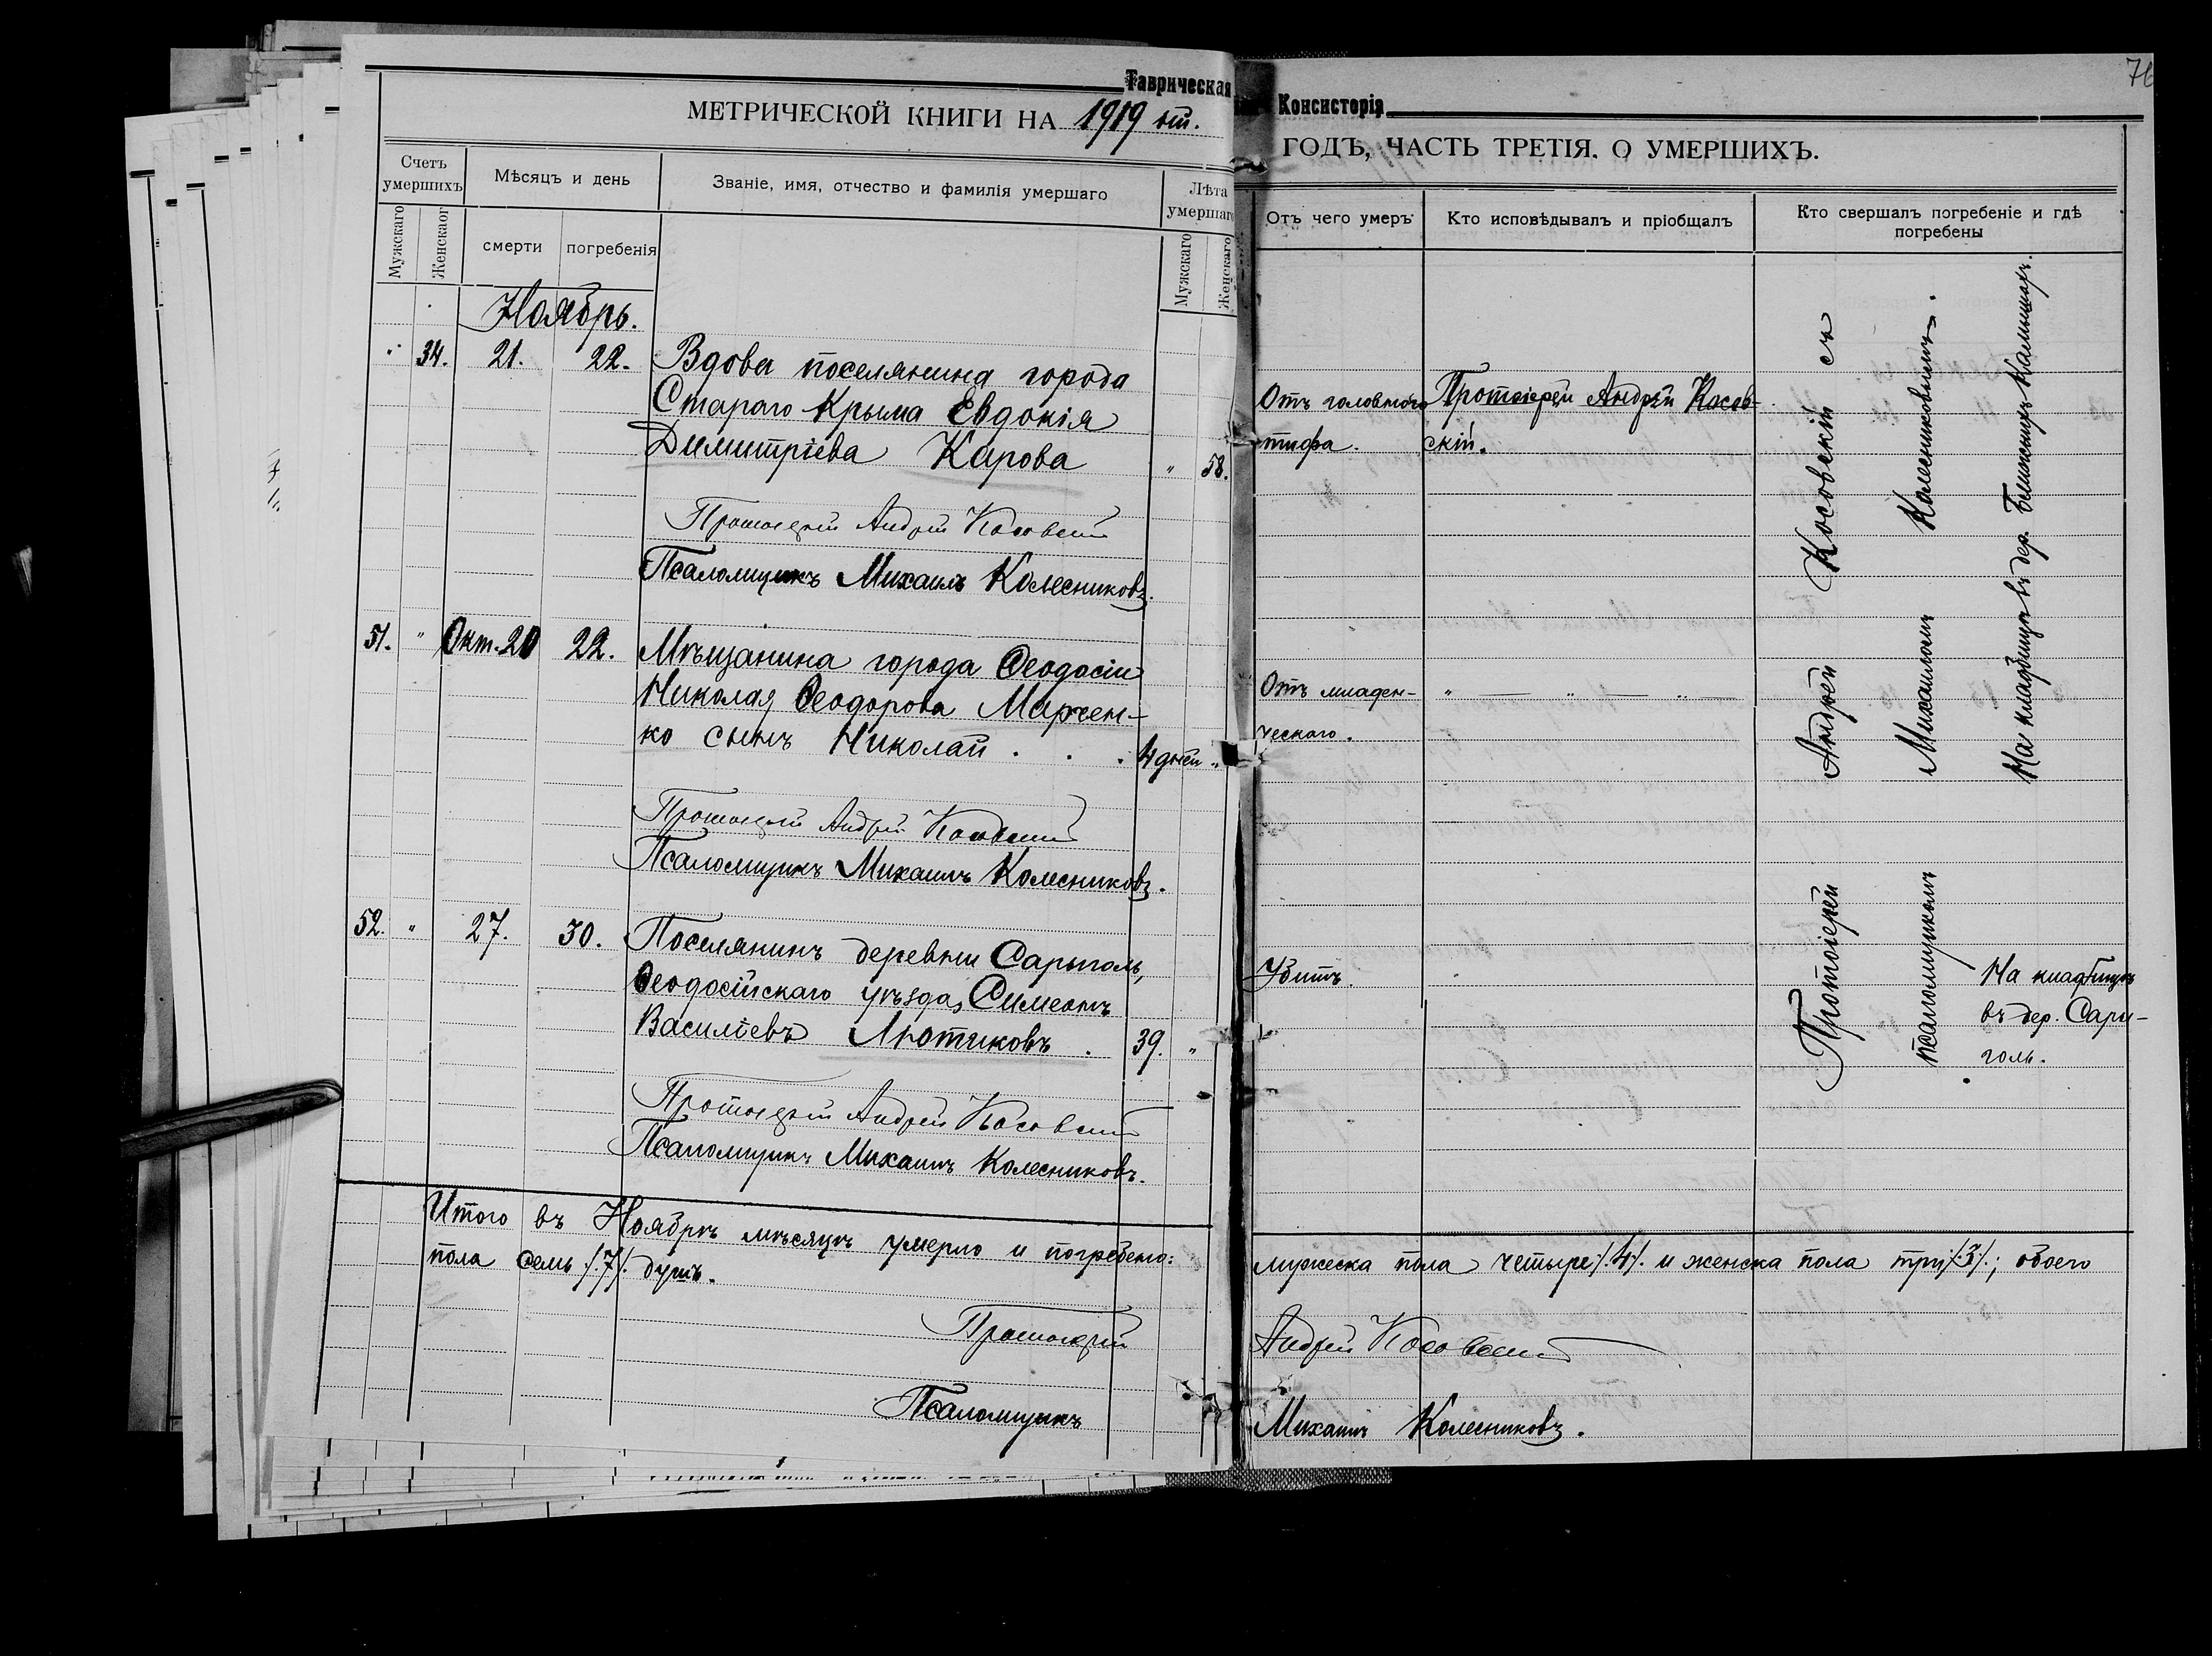 Таврическая
МЕТРИЧЕСКОЙ КНИГИ НА 1919 
Счетъ умершихъ
Мѣсяцъ и день
Званіе, имя, отчество и фамилія умершаго
Лѣта умершаго
Мужскаго
Женскаог
смерти
погребенія
Мужскаго
Женскаго
Ноябрь.
" 34. 21. 22. Вдова поселянина города
Стараго Крыма Евдокія
Димитріева Карова " 58.
Протоіерей Андрей Косовскій
Псаломщикъ Михаилъ Колесниковъ.
51. " Окт. 20 22. Мѣщанина города Ѳеодосіи
Николая Ѳеодорова Марчен-
ко сынъ Николай . . . 4 дней "
Протоіерей Андрей Косовскій
Псаломщикъ Михаилъ Колесниковъ.
52. " 27. 30. Поселянинъ деревни Сарыголь,
Ѳеодосійскаго уѣзда, Симеонъ
Василіевъ Лютиковъ . 39. "
Протоіерей Андрей Косовскій
Псаломщикъ Михаилъ Колесниковъ.
Итого въ Ноябрѣ мѣсяцѣ умерло и погребено:
пола семь /.7/. душъ.
Протоіерей
Псаломщикъ
76
Консисторія
ГОДЪ, ЧАСТЬ ТРЕТІЯ. О УМЕРШИХЪ.
Отъ чего умеръ
Кто исповѣдывалъ и пріобщалъ
Кто свершалъ погребеніе и гдѣ
погребены
Отъ головного Протоіерей Андрей Косов-
тифа. скій.
Отъ младен- " — " — " —
ческаго.
Убитъ.
Протоіерей Андрей Косовскій съ
псаломщикомъ Михаиломъ Колесниковымъ.
На кладбищѣ въ дер.
На кладбищѣ
въ дер. Сары-
голь.
мужеска пола четыре /.4/. и женска пола три /.3/.; обоего
Андрей Косовскій
Михаилъ Колесниковъ.